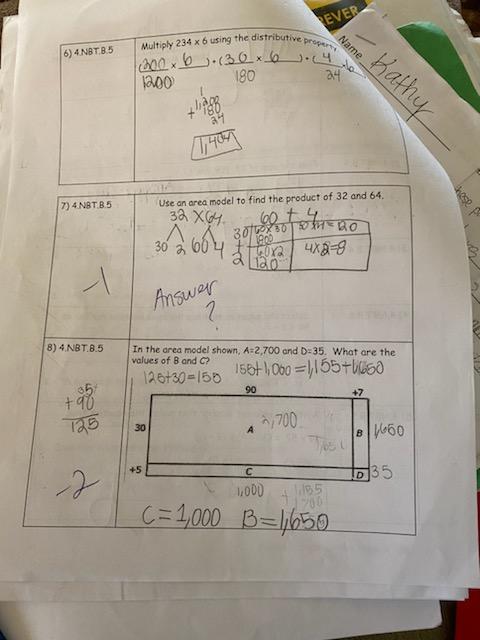 EVER
Name
Kathy
6) 4.NBT.B.5
Multiply 234 x 6 using the distributive property
(200 x 6) + (30 x 6) + (4 x 6
1200
180
24
1
1,200
180
+ 24
1,404
7) 4.NBT.B.5
Use an area model to find the product of 32 and 64.
32 X 64
30 2 60 4
60 + 4
30
60X30
1800
= 120
+
2
60X2
120
4X2=8
-1
Answer
?
8) 4.NBT.B.5
In the area model shown, A=2,700 and D=35. What are the
values of B and C?
125+30=155
155+1,000=1,155+1,650
35
+90
125
90
+7
30
A
2,700
B
1,650
+5
C
D
35
1,000
+ 1,155
-2
C=1,000 B=1,650